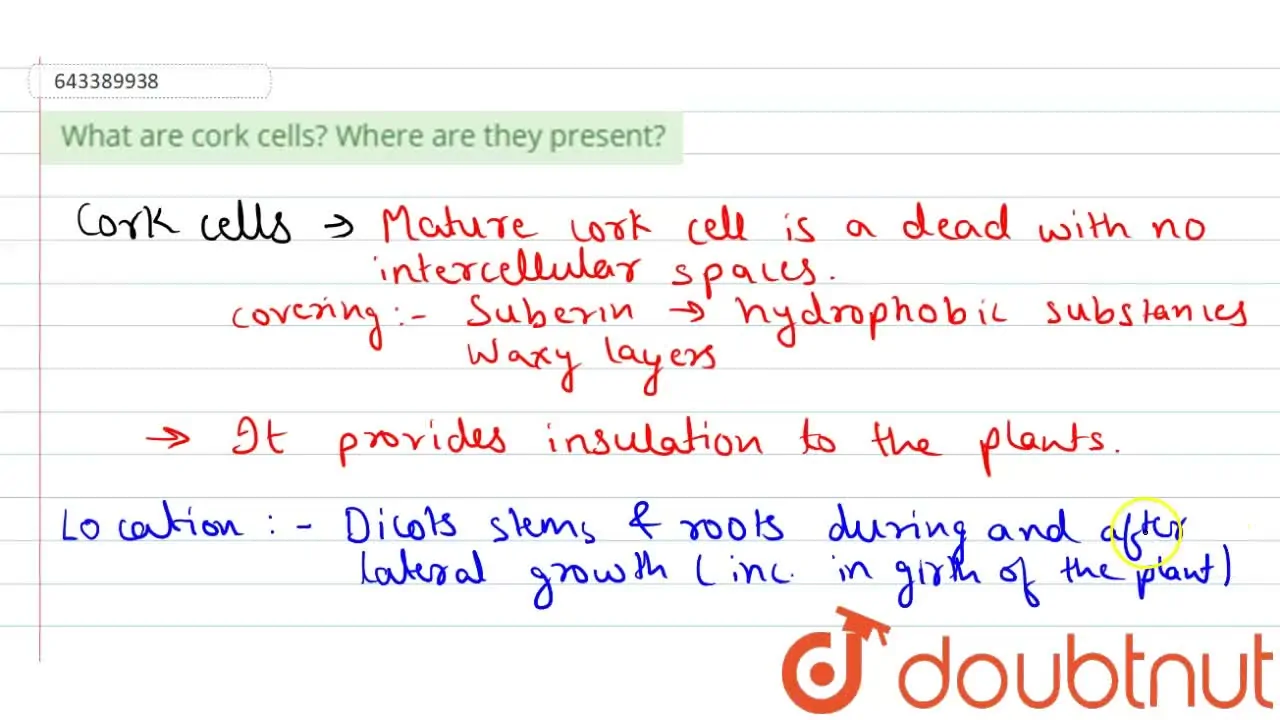 643389938
What are cork cells? Where are they present?
Cork cells → Mature cork cell is a dead with no
intercellular spaces.
covering :- Suberin → hydrophobic substances
Waxy layers
→ It provides insulation to the plants.
Location :- Dicots stems & roots during and after
lateral growth (inc. in girth of the plant)
doubtnut